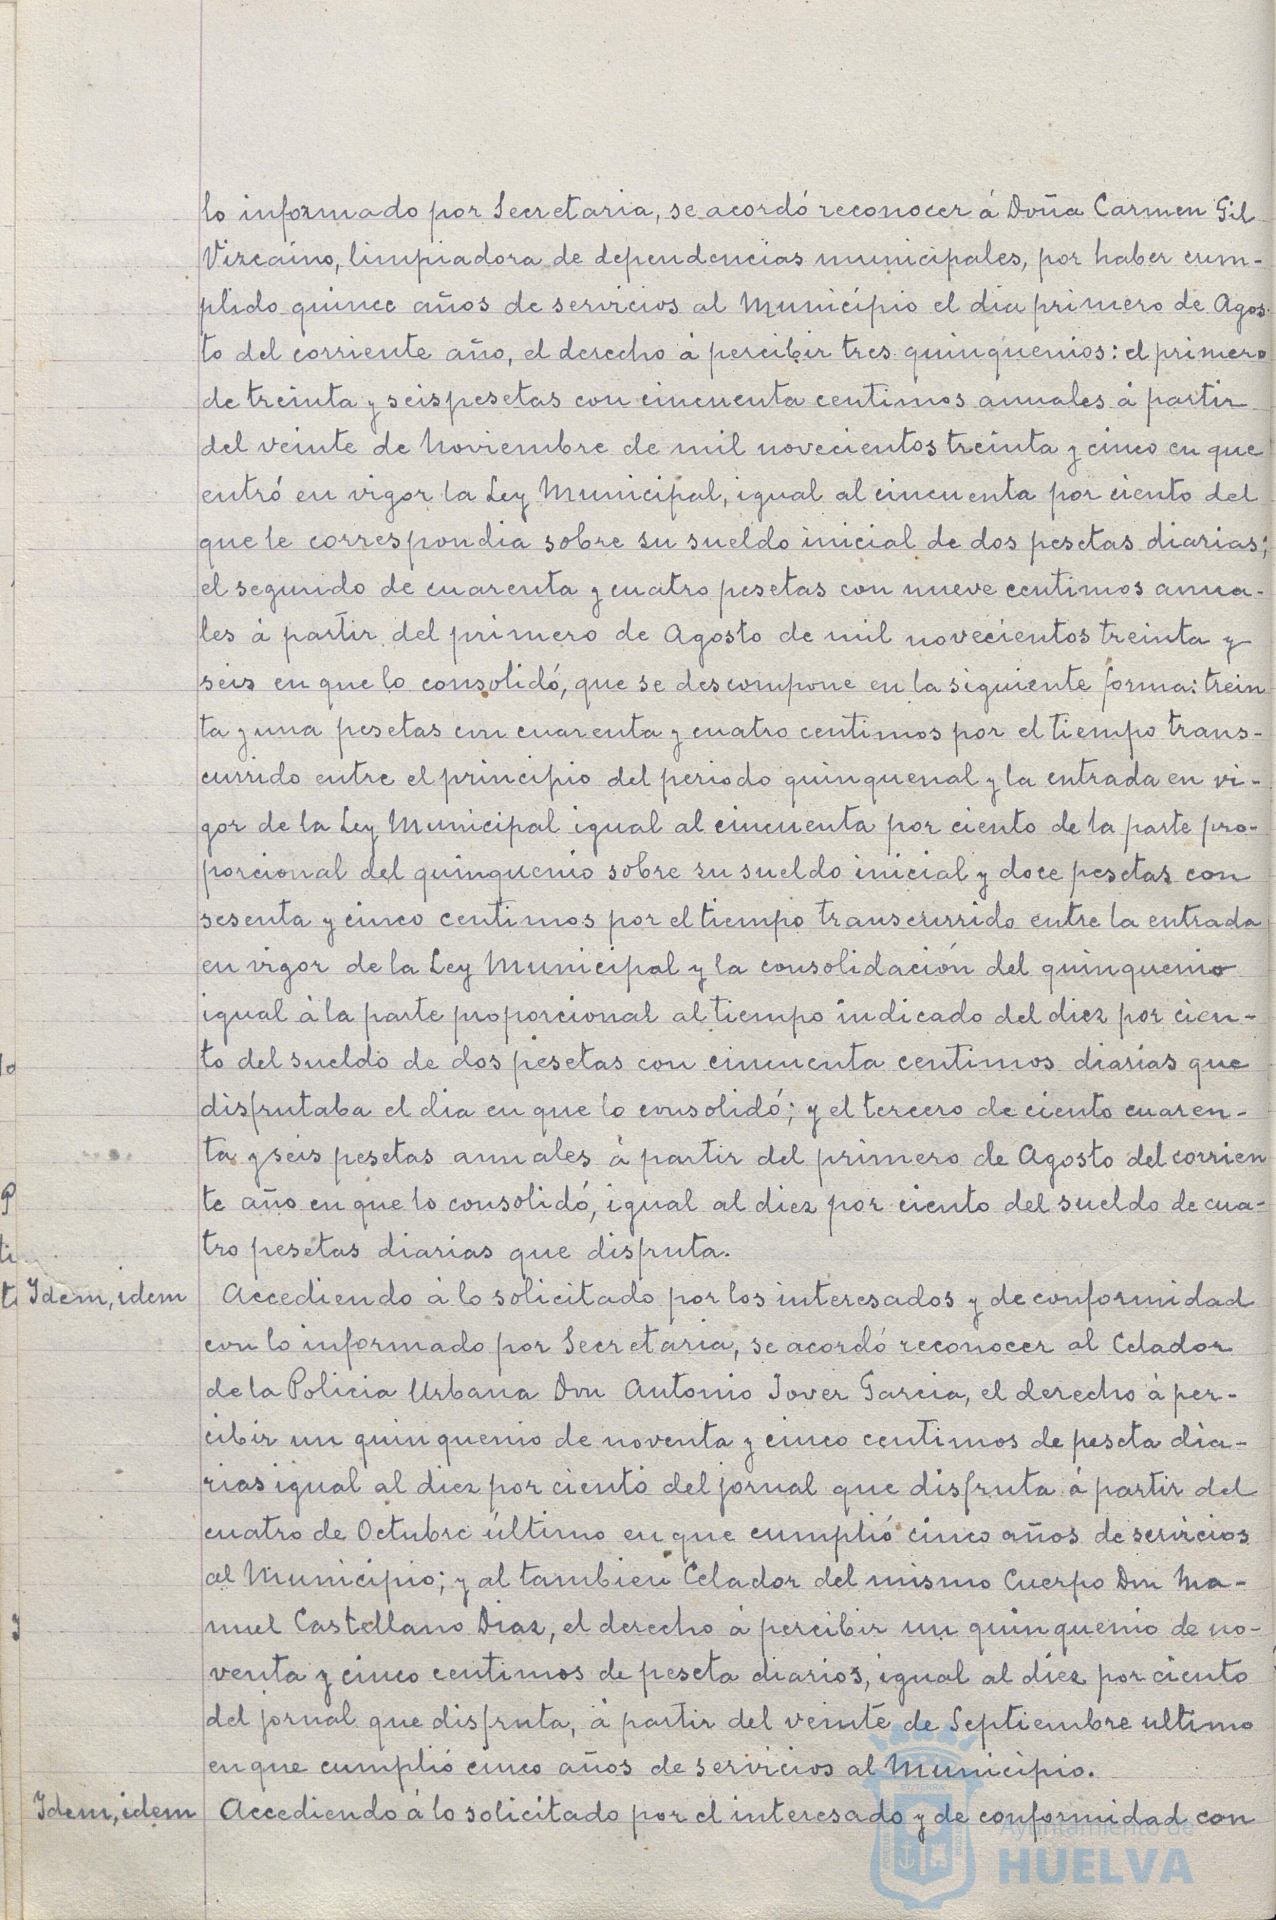 lo informado por Secretaria, se acordó reconocer á Doña Carmen Gil
Vizcaíno, limpiadora de dependencias municipales, por haber cum-
plido quince años de servicios al Municipio el dia primero de Agos-
to del corriente año, el derecho á percibir tres quinquenios: el primero
de treinta y seis pesetas con cincuenta centimos anuales á partir
del veinte de Noviembre de mil novecientos treinta y cinco en que
entró en vigor la Ley Municipal, igual al cincuenta por ciento del
que le correspondia sobre su sueldo inicial de dos pesetas diarias;
el segundo de cuarenta y cuatro pesetas con nueve centimos anua-
les á partir del primero de Agosto de mil novecientos treinta y
seis en que lo consolidó, que se descompone en la siguiente forma: trein
ta y una pesetas con cuarenta y cuatro centimos por el tiempo trans-
currido entre el principio del periodo quinquenal y la entrada en vi-
gor de la Ley Municipal igual al cincuenta por ciento de la parte pro-
porcional del quinquenio sobre su sueldo inicial y doce pesetas con
sesenta y cinco centimos por el tiempo transcurrido entre la entrada
en vigor de la Ley Municipal y la consolidación del quinquenio
igual á la parte proporcional al tiempo indicado del diez por cien-
to del sueldo de dos pesetas con cincuenta centimos diarias que
disfrutaba el dia en que lo consolidó; y el tercero de ciento cuaren-
ta y seis pesetas anuales á partir del primero de Agosto del corrien
te año en que lo consolidó, igual al diez por ciento del sueldo de cua-
tro pesetas diarias que disfruta.
Idem, idem Accediendo á lo solicitado por los interesados y de conformidad
con lo informado por Secretaria, se acordó reconocer al Celador
de la Policia Urbana Don Antonio Jover Garcia, el derecho á per-
cibir un quinquenio de noventa y cinco centimos de peseta dia-
rias igual al diez por ciento del jornal que disfruta á partir del
cuatro de Octubre último en que cumplió cinco años de servicios
al Municipio; y al tambien Celador del mismo Cuerpo Don Ma-
nuel Castellano Diaz, el derecho á percibir un quinquenio de no-
venta y cinco centimos de peseta diarios, igual al diez por ciento
del jornal que disfruta, á partir del veinte de Septiembre ultimo
en que cumplió cinco años de servicios al Municipio.
Idem, idem Accediendo á lo solicitado por el interesado y de conformidad con
Ayuntamiento de
HUELVA